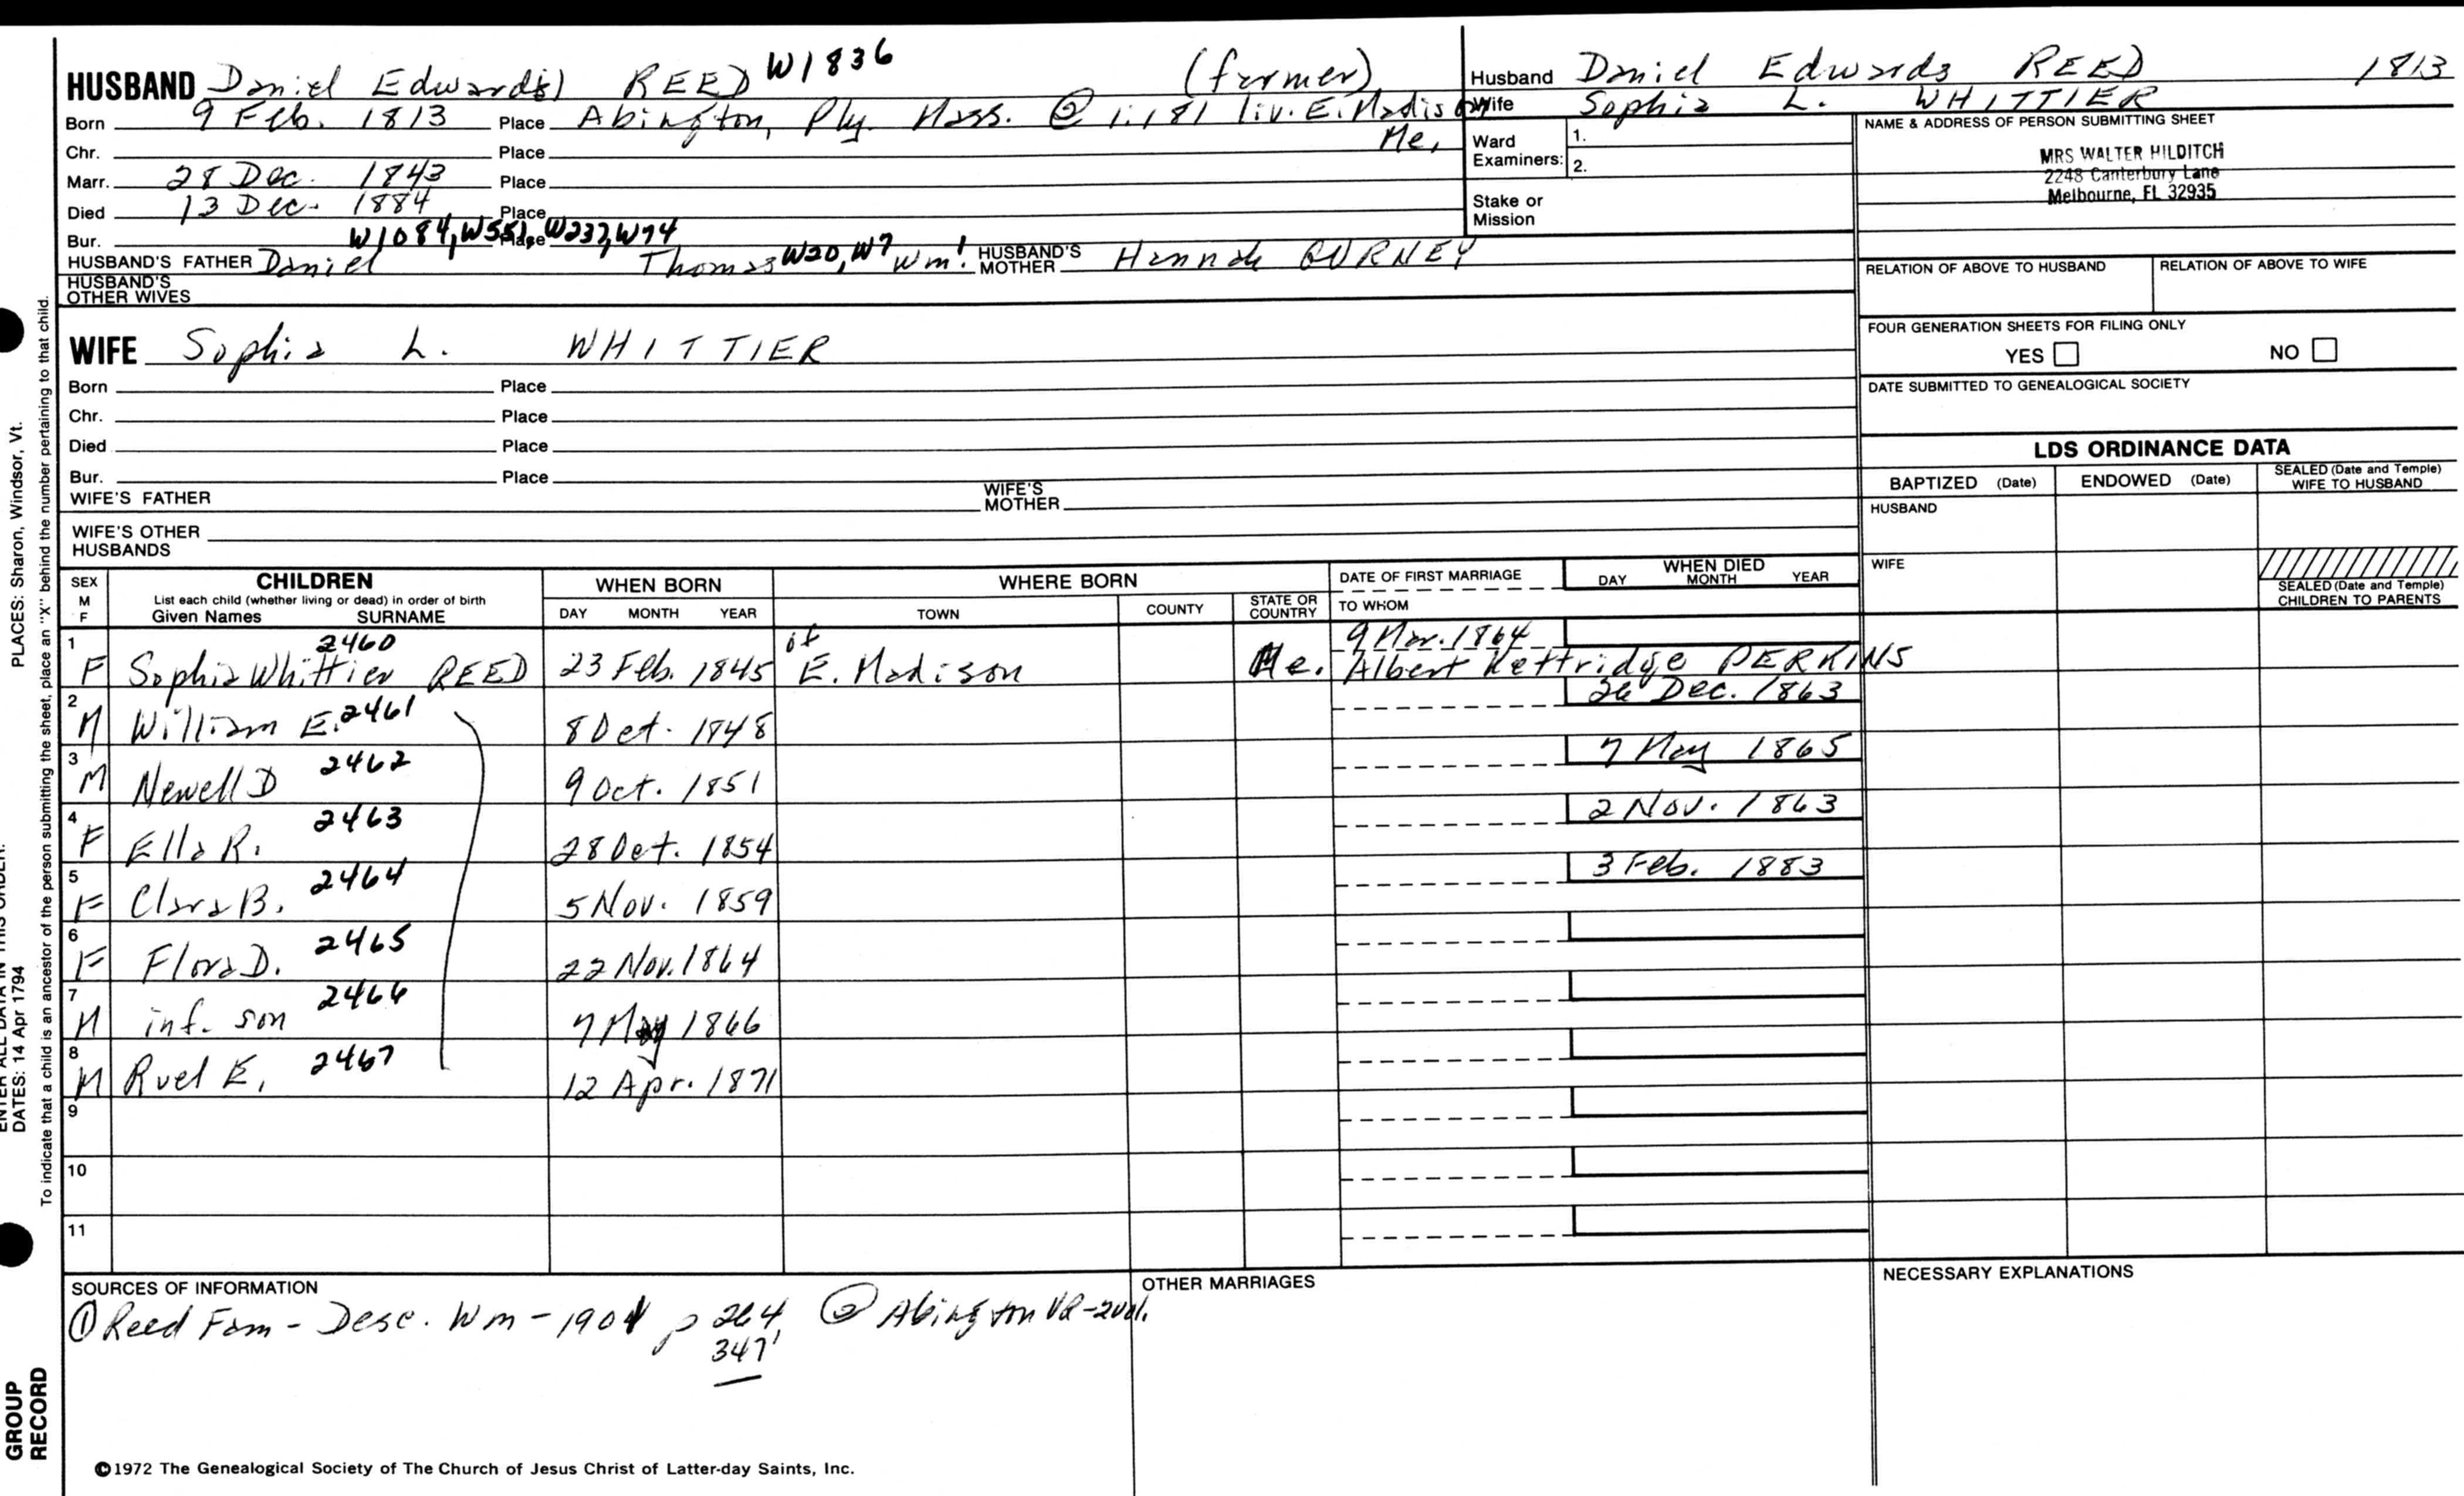 HUSBAND Daniel Edward(s) REED W1836 (farmer)
Born 9 Feb. 1813 Place Abington, Ply. Mass. @ 1:181 liv. E. Madison
Me,
Chr. Place
Marr. 28 Dec. 1843 Place
Died 13 Dec. 1884 Place
Bur. Place
W1084, W551, W237, W74
HUSBAND'S FATHER Daniel Thomas W20, W7 Wm! HUSBAND'S MOTHER Hannah GURNEY
HUSBAND'S
OTHER WIVES
WIFE Sophia L. WHITTIER
Born Place
Chr. Place
Died Place
Bur. Place
WIFE'S FATHER WIFE'S MOTHER
WIFE'S OTHER
HUSBANDS
Husband Daniel Edwards REED 1813
Wife Sophia L. WHITTIER
Ward
Examiners: 1.
2.
Stake or
Mission
NAME & ADDRESS OF PERSON SUBMITTING SHEET
MRS WALTER HILDITCH
2248 Canterbury Lane
Melbourne, FL 32935
RELATION OF ABOVE TO HUSBAND RELATION OF ABOVE TO WIFE
FOUR GENERATION SHEETS FOR FILING ONLY
YES NO
DATE SUBMITTED TO GENEALOGICAL SOCIETY
LDS ORDINANCE DATA
BAPTIZED (Date) ENDOWED (Date) SEALED (Date and Temple)
WIFE TO HUSBAND
HUSBAND
WIFE
SEALED (Date and Temple)
CHILDREN TO PARENTS
SEX
M
F
CHILDREN
List each child (whether living or dead) in order of birth
Given Names SURNAME
WHEN BORN
DAY MONTH YEAR
WHERE BORN
TOWN COUNTY STATE OR COUNTRY
DATE OF FIRST MARRIAGE
TO WHOM
WHEN DIED
DAY MONTH YEAR
1 2460 of 9 Mar. 1864
F Sophia Whittier REED 23 Feb. 1845 E. Madison Me. Albert Kettridge PERKINS
2 26 Dec. 1863
M William E. 2461 8 Oct. 1848
3 7 May 1865
M Newell D 2462 9 Oct. 1851
4 2 Nov. 1863
F Ella R. 2463 28 Oct. 1854
5 3 Feb. 1883
F Clara B. 2464 5 Nov. 1859
6
F Flora D. 2465 22 Nov. 1864
7
M inf. son 2466 7 May 1866
8
M Ruel E. 2467 12 Apr. 1871
9
10
11
SOURCES OF INFORMATION
① Reed Fam - Desc. Wm - 1901 p 264, ② Abington VR-2vol.
347
OTHER MARRIAGES
NECESSARY EXPLANATIONS
©1972 The Genealogical Society of The Church of Jesus Christ of Latter-day Saints, Inc.
PLACES: Sharon, Windsor, Vt.
To indicate that a child is an ancestor of the person submitting the sheet, place an "X" behind the number pertaining to that child.
ENTER ALL DATA IN THIS ORDER:
DATES: 14 Apr 1794
GROUP
RECORD